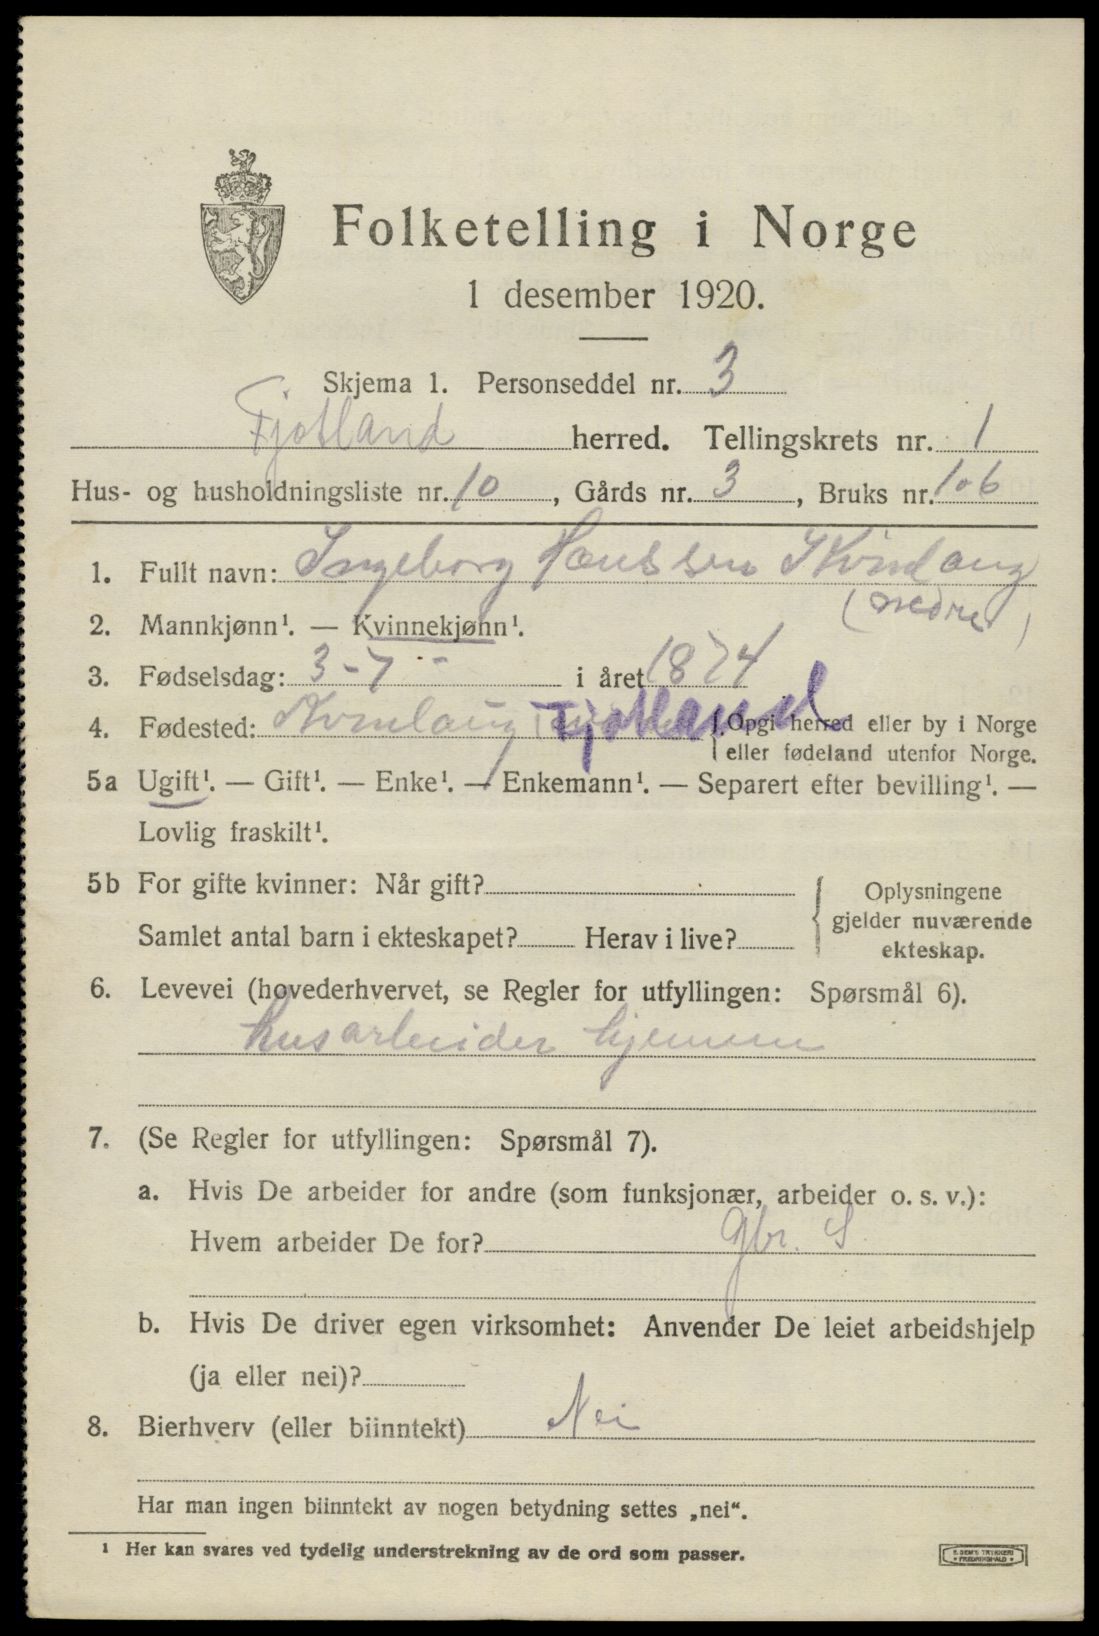 Folketelling i Norge
1 desember 1920.
Skjema 1. Personseddel nr. 3
Fjotland herred. Tellingskrets nr. 1
Hus- og husholdningsliste nr. 10, Gårds nr. 3, Bruks nr. 1 o 6
1. Fullt navn: Ingeborg Hanssen Kvinlaug
(nedre)
2. Mannkjønn¹. — Kvinnekjønn¹.
3. Fødselsdag: 3-7- i året 1874
4. Fødested: Kvinlaug Fjotland {Opgi herred eller by i Norge
eller fødeland utenfor Norge.
5a Ugift¹. — Gift¹. — Enke¹. — Enkemann¹. — Separert efter bevilling¹. —
Lovlig fraskilt¹.
5b For gifte kvinner: Når gift? { Oplysningene
gjelder nuværende
Samlet antal barn i ekteskapet? Herav i live? ekteskap.
6. Levevei (hovederhvervet, se Regler for utfyllingen: Spørsmål 6).
husarbeider hjemme
7. (Se Regler for utfyllingen: Spørsmål 7).
a. Hvis De arbeider for andre (som funksjonær, arbeider o. s. v.):
Hvem arbeider De for? Gbr. S
b. Hvis De driver egen virksomhet: Anvender De leiet arbeidshjelp
(ja eller nei)?
8. Bierhverv (eller biinntekt) Nei
Har man ingen biinntekt av nogen betydning settes „nei“.
¹ Her kan svares ved tydelig understrekning av de ord som passer.